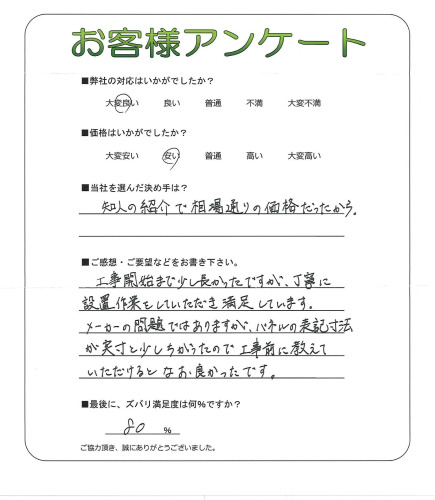 お客様アンケート
■弊社の対応はいかがでしたか？
大変良い　良い　普通　不満　大変不満
■価格はいかがでしたか？
大変安い　安い　普通　高い　大変高い
■当社を選んだ決め手は？
知人の紹介で相場通りの価格だったから。
■ご感想・ご要望などをお書き下さい。
工事開始まで少し長かったですが、丁寧に
設置作業をしていただき満足しています。
メーカーの問題ではありますが、パネルの表記寸法
が実寸と少しちがうたので工事前に教えて
いただけるとなお良かったです。
■最後に、ズバリ満足度は何%ですか？
80 %
ご協力頂き、誠にありがとうございました。